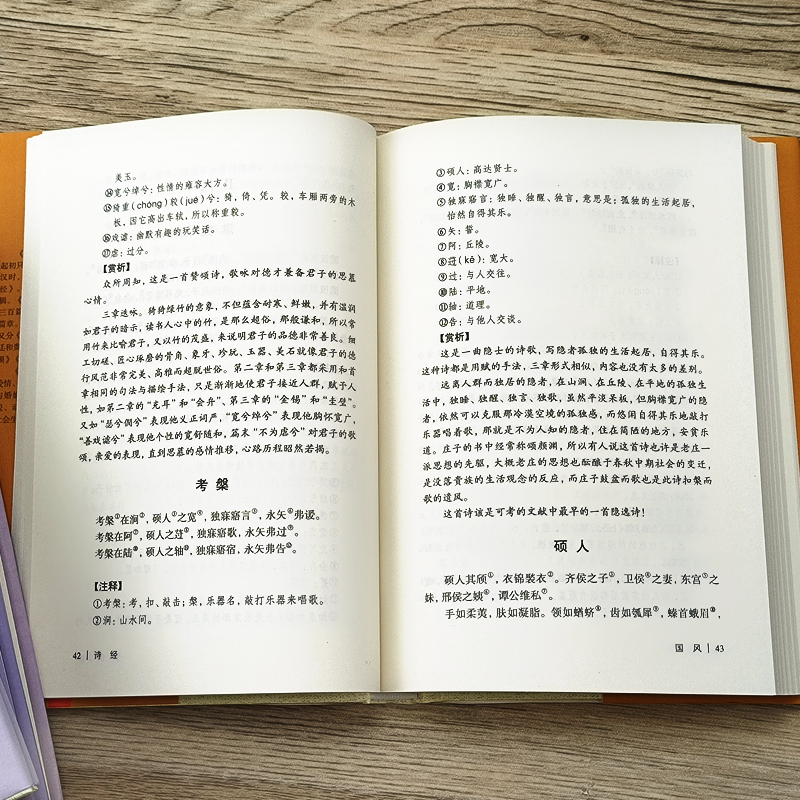 美玉。
⑭宽兮绰兮：性情的雍容大方。
⑮猗重(chóng)较(jué)兮：猗，倚、凭。较，车厢两旁的木
板，因它高出车轼，所以称重较。
⑯戏谑：幽默有趣的玩笑话。
⑰虐：过分。
【赏析】
众所周知，这是一首赞颂诗，歌咏对德才兼备君子的思慕
心情。
三章迭咏。猗猗绿竹的意象，不但蕴含耐寒、鲜嫩，并有温润
如君子的暗示，读书人心中的竹，是那么超俗，那般谦和，所以常
用竹来比喻君子，又以竹的茂盛，来说明君子的品德非常善良。细
工切磋、匠心琢磨的骨角、象牙、珍玩、玉器、美石就像君子的德
行风范非常完美、高雅而超脱世俗。第二章和第三章都采用和首
章相同的句法与描绘手法，只是渐渐地使君子接近人群，赋予人
性，如第二章的“充耳”和“会弁”、第三章的“金锡”和“圭璧”。
又如“瑟兮僩兮”表现他义正词严，“宽兮绰兮”表现他胸怀宽广，
“善戏谑兮”表现他个性的宽舒随和，篇末“不为虐兮”对君子的歌
颂，亲爱的表现，直到思慕的感情推移，心路历程昭然若揭。
考槃
考槃①在涧②，硕人③之宽④，独寐寤言⑤，永矢⑥弗谖。
考槃在阿⑦，硕人之薖⑧，独寐寤歌，永矢弗过⑨。
考槃在陆⑩，硕人之轴⑪，独寐寤宿，永矢弗告⑫。
【注释】
①考槃：考，扣、敲击；槃，乐器名，敲打乐器来唱歌。
②涧：山水间。
42 | 诗 经
③硕人：高达贤士。
④宽：胸襟宽广。
⑤独寐寤言：独睡、独醒、独言，意思是：孤独的生活起居，
怡然自得其乐。
⑥矢：誓。
⑦阿：丘陵。
⑧薖(kē)：宽大。
⑨过：与人交往。
⑩陆：平地。
⑪轴：道理。
⑫告：与他人交谈。
【赏析】
这是一曲隐士的诗歌，写隐者孤独的生活起居，自得其乐。
这种诗都是用赋的手法，三章形式相似，内容也没有太多的差别。
远离人群而独居的隐者，在山涧、在丘陵、在平地的孤独生
活中，独睡、独醒、独言、独歌，虽然平淡呆板，但胸襟宽广的隐
者，依然可以克服那冷漠空境的孤独感，而悠闲自得其乐地敲打
乐器唱着歌，那就是不为人知的隐者，住在简陋的地方，安贫乐
道。庄子的书中经常称颂颜渊，所以有人说这首诗也许是老庄一
派思想的先驱，大概老庄的思想也酝酿于春秋中期社会的变迁，
是没落贵族的生活观念的反应，而庄子鼓盆而歌也是此诗扣槃而
歌的遗风。
这首诗该是可考的文献中最早的一首隐逸诗！
硕人
硕人其颀①，衣锦褧衣②。齐侯之子③，卫侯④之妻，东宫⑤之
妹，邢侯之姨⑥，谭公维私⑦。
手如柔荑，肤如凝脂。领如蝤蛴⑧，齿如瓠犀⑨，螓首蛾眉⑩，
国 风 | 43